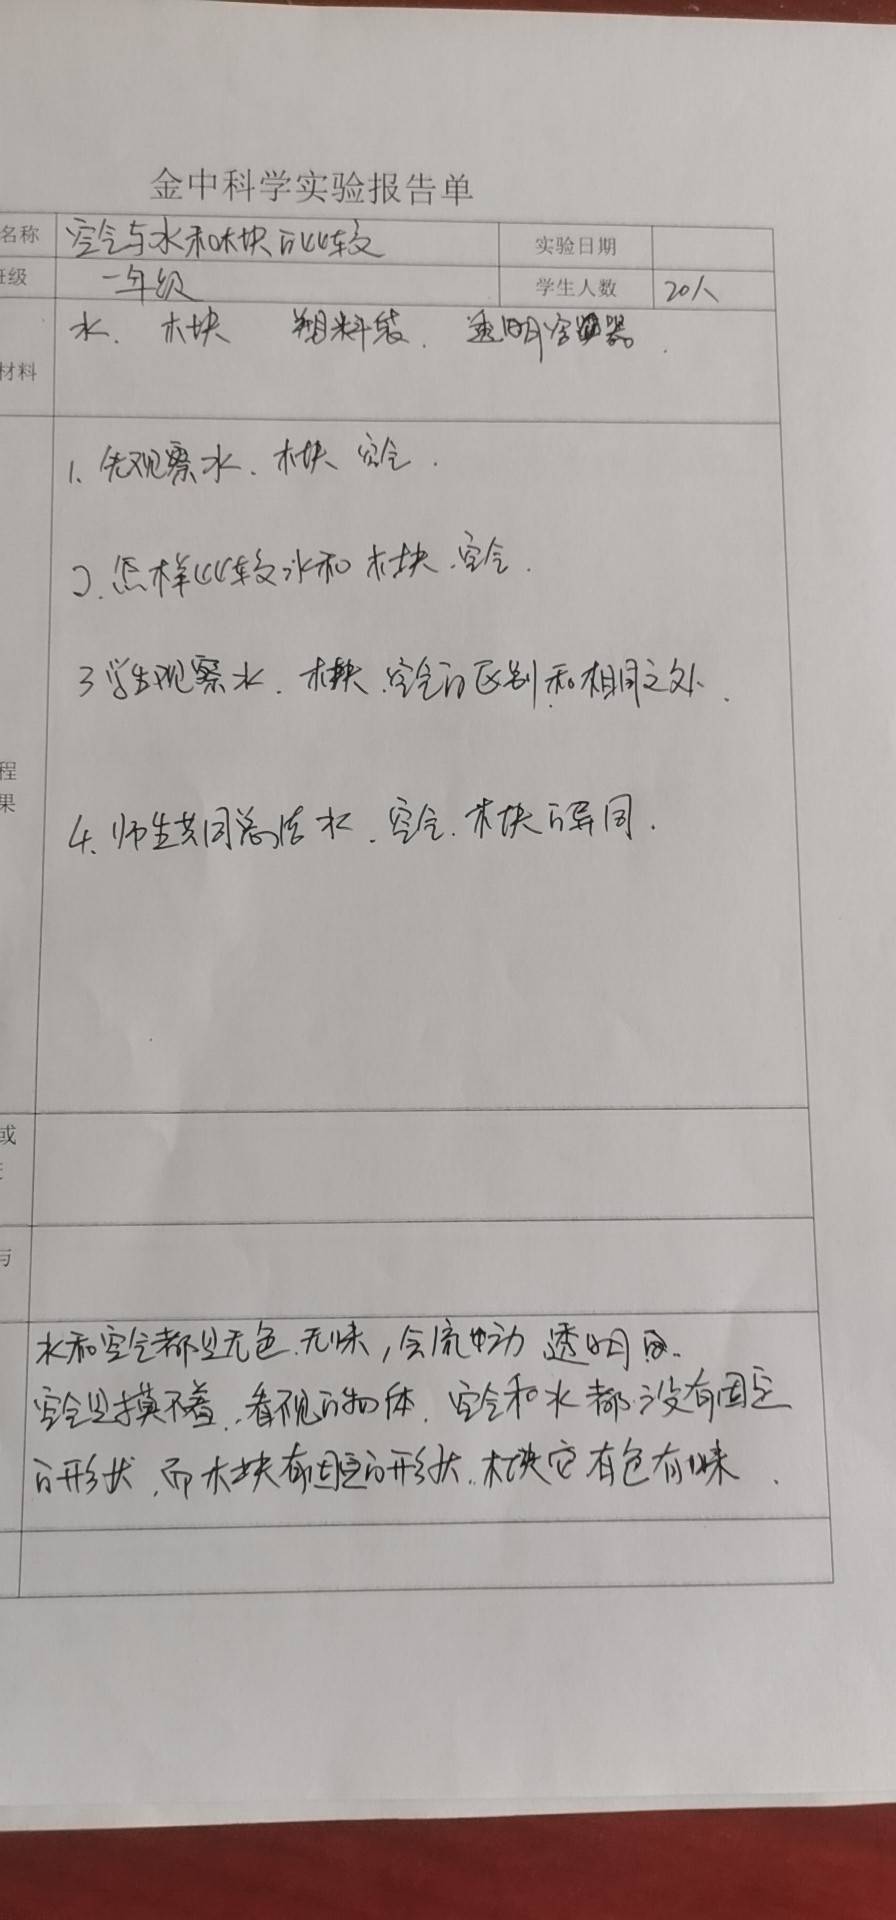 金中科学实验报告单
名称 空气与水和木块的比较 实验日期
班级 一年级 学生人数 20人
材料 水、木块 塑料袋、透明容器。
1、先观察水、木块、空气.
2、怎样比较水和木块、空气.
3 学生观察水、木块、空气的区别和相同之处、
程
果
4、师生共同总结水、空气、木块的异同.
或
与
水和空气都是无色、无味,会流动 透明的.
空气是摸不着、看不见的物体、空气和水都没有固定
的形状、而木块有固定的形状、木块它有色有味.